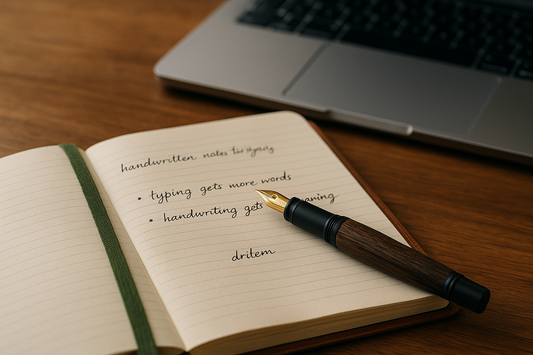 handwritten notes
• typing gets more words
• handwriting gets
drilem